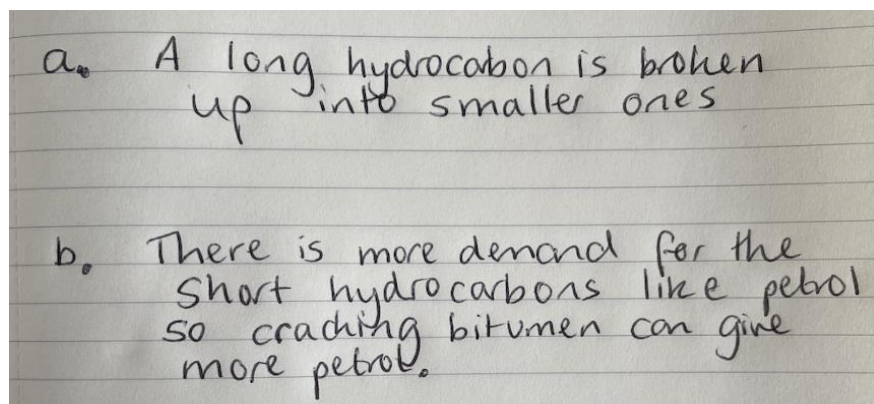 a. A long hydrocabon is broken
up into smaller ones
b. There is more demand for the
short hydrocarbons like petrol
so cracking bitumen can give
more petrol.